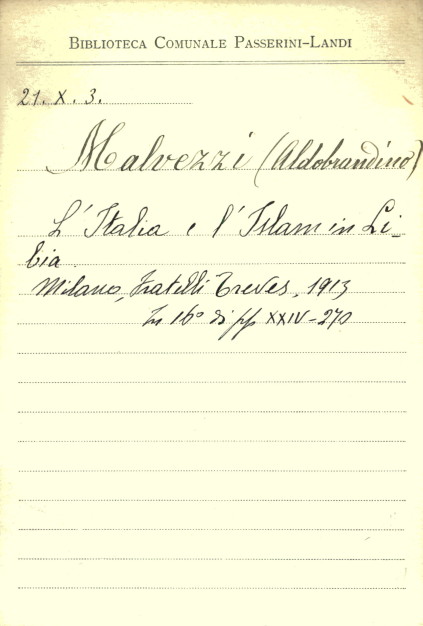 BIBLIOTECA COMUNALE PASSERINI-LANDI
21. X. 3.
Malvezzi (Aldobrandino)
L'Italia e l'Islam in Li-
bia
Milano, Fratelli Treves, 1913
In 16° di pp XXIV-270